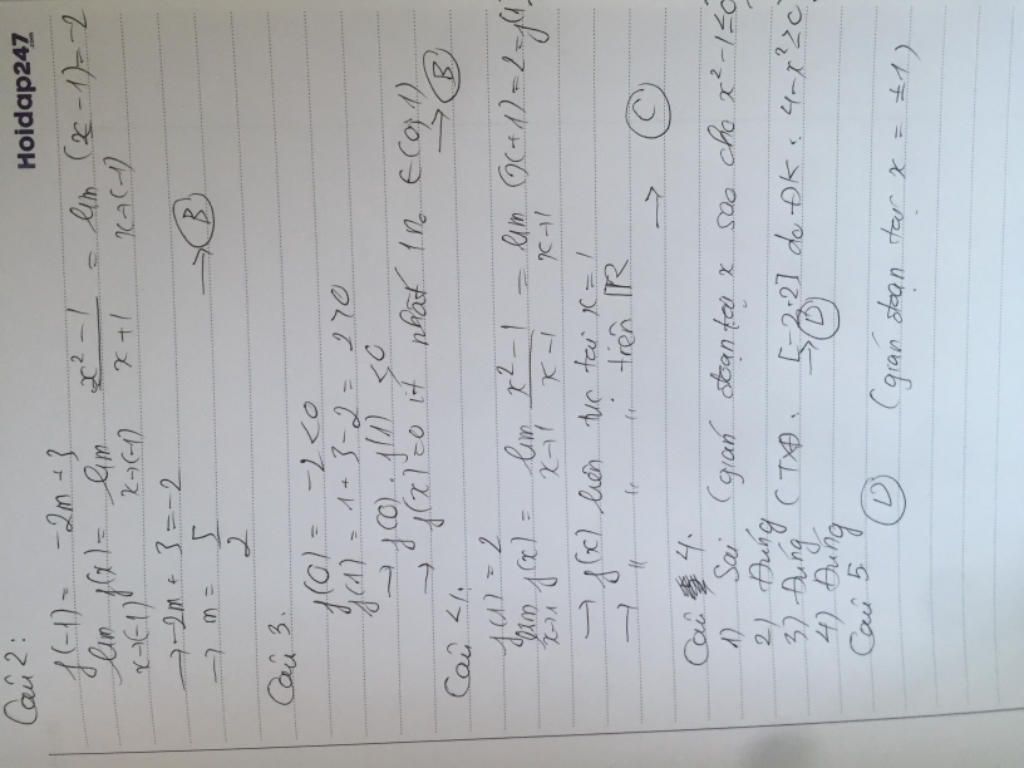 Hoidap247
Câu 2:
f(-1) = -2m + 3
lim f(x) = lim x² - 1 / x + 1 = lim (x - 1) = -2
x→(-1) x→(-1) x→(-1)
→ -2m + 3 = -2
→ m = 5/2 → B
Câu 3.
f(0) = -2 < 0
f(1) = 1 + 3 - 2 = 2 > 0
→ f(0) . f(1) < 0
→ f(x) = 0 ít nhất 1 n₀ ∈ (0,1)
→ B
Câu 4.
f(1) = 2
lim f(x) = lim x² - 1 / x - 1 = lim (x + 1) = 2 = f(1)
x→1 x→1 x→1
→ f(x) liên tục tại x = 1
→ " " " trên ℝ
→ C
Câu 4.
1) Sai (gián đoạn tại x sao cho x² - 1 ≤ 0
2) Đúng
3) Đúng (TXĐ: [-2,2] do ĐK: 4 - x² ≥ 0
4) Đúng → D
Câu 5.
D (gián đoạn tại x = ±1)